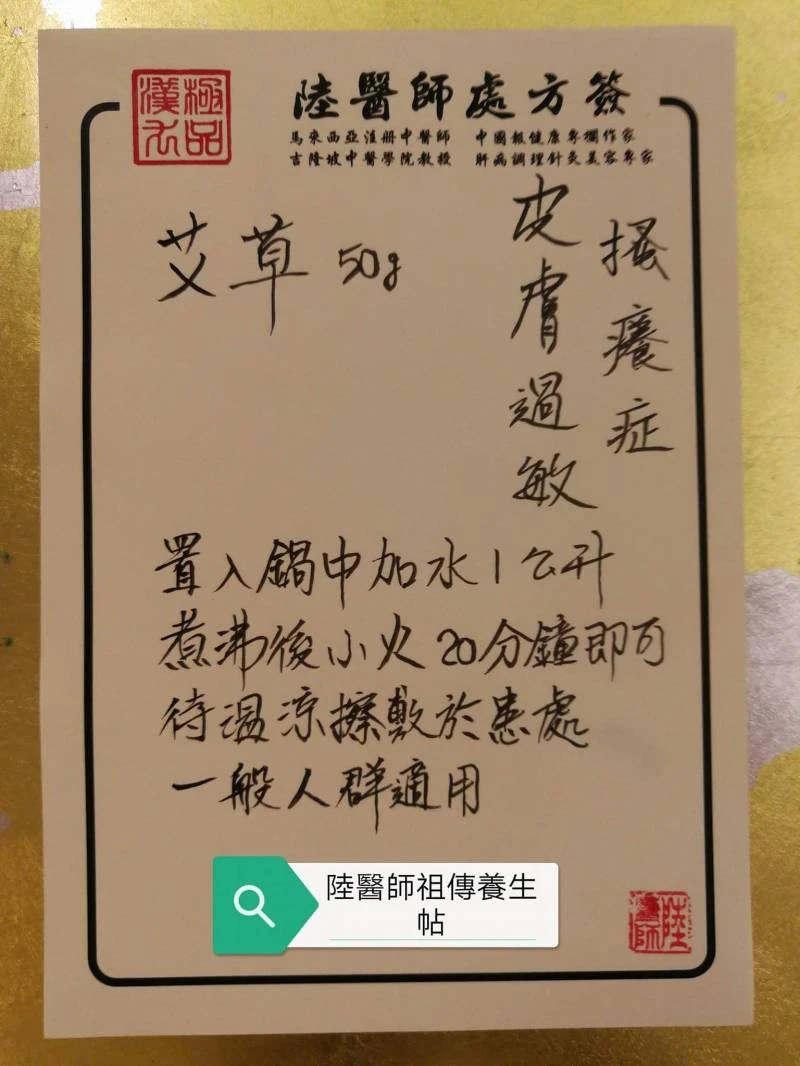 極品
漢方
陸醫師處方簽
馬來西亞注册中醫師 中國報健康專欄作家
吉隆坡中醫學院教授 肝病調理針灸美容專家
搔癢症
皮膚過敏
艾草 50g
置入鍋中加水1公升
煮沸後小火20分鐘即可
待溫涼擦敷於患處
一般人群適用
陸醫師祖傳養生
帖
陸
醫師